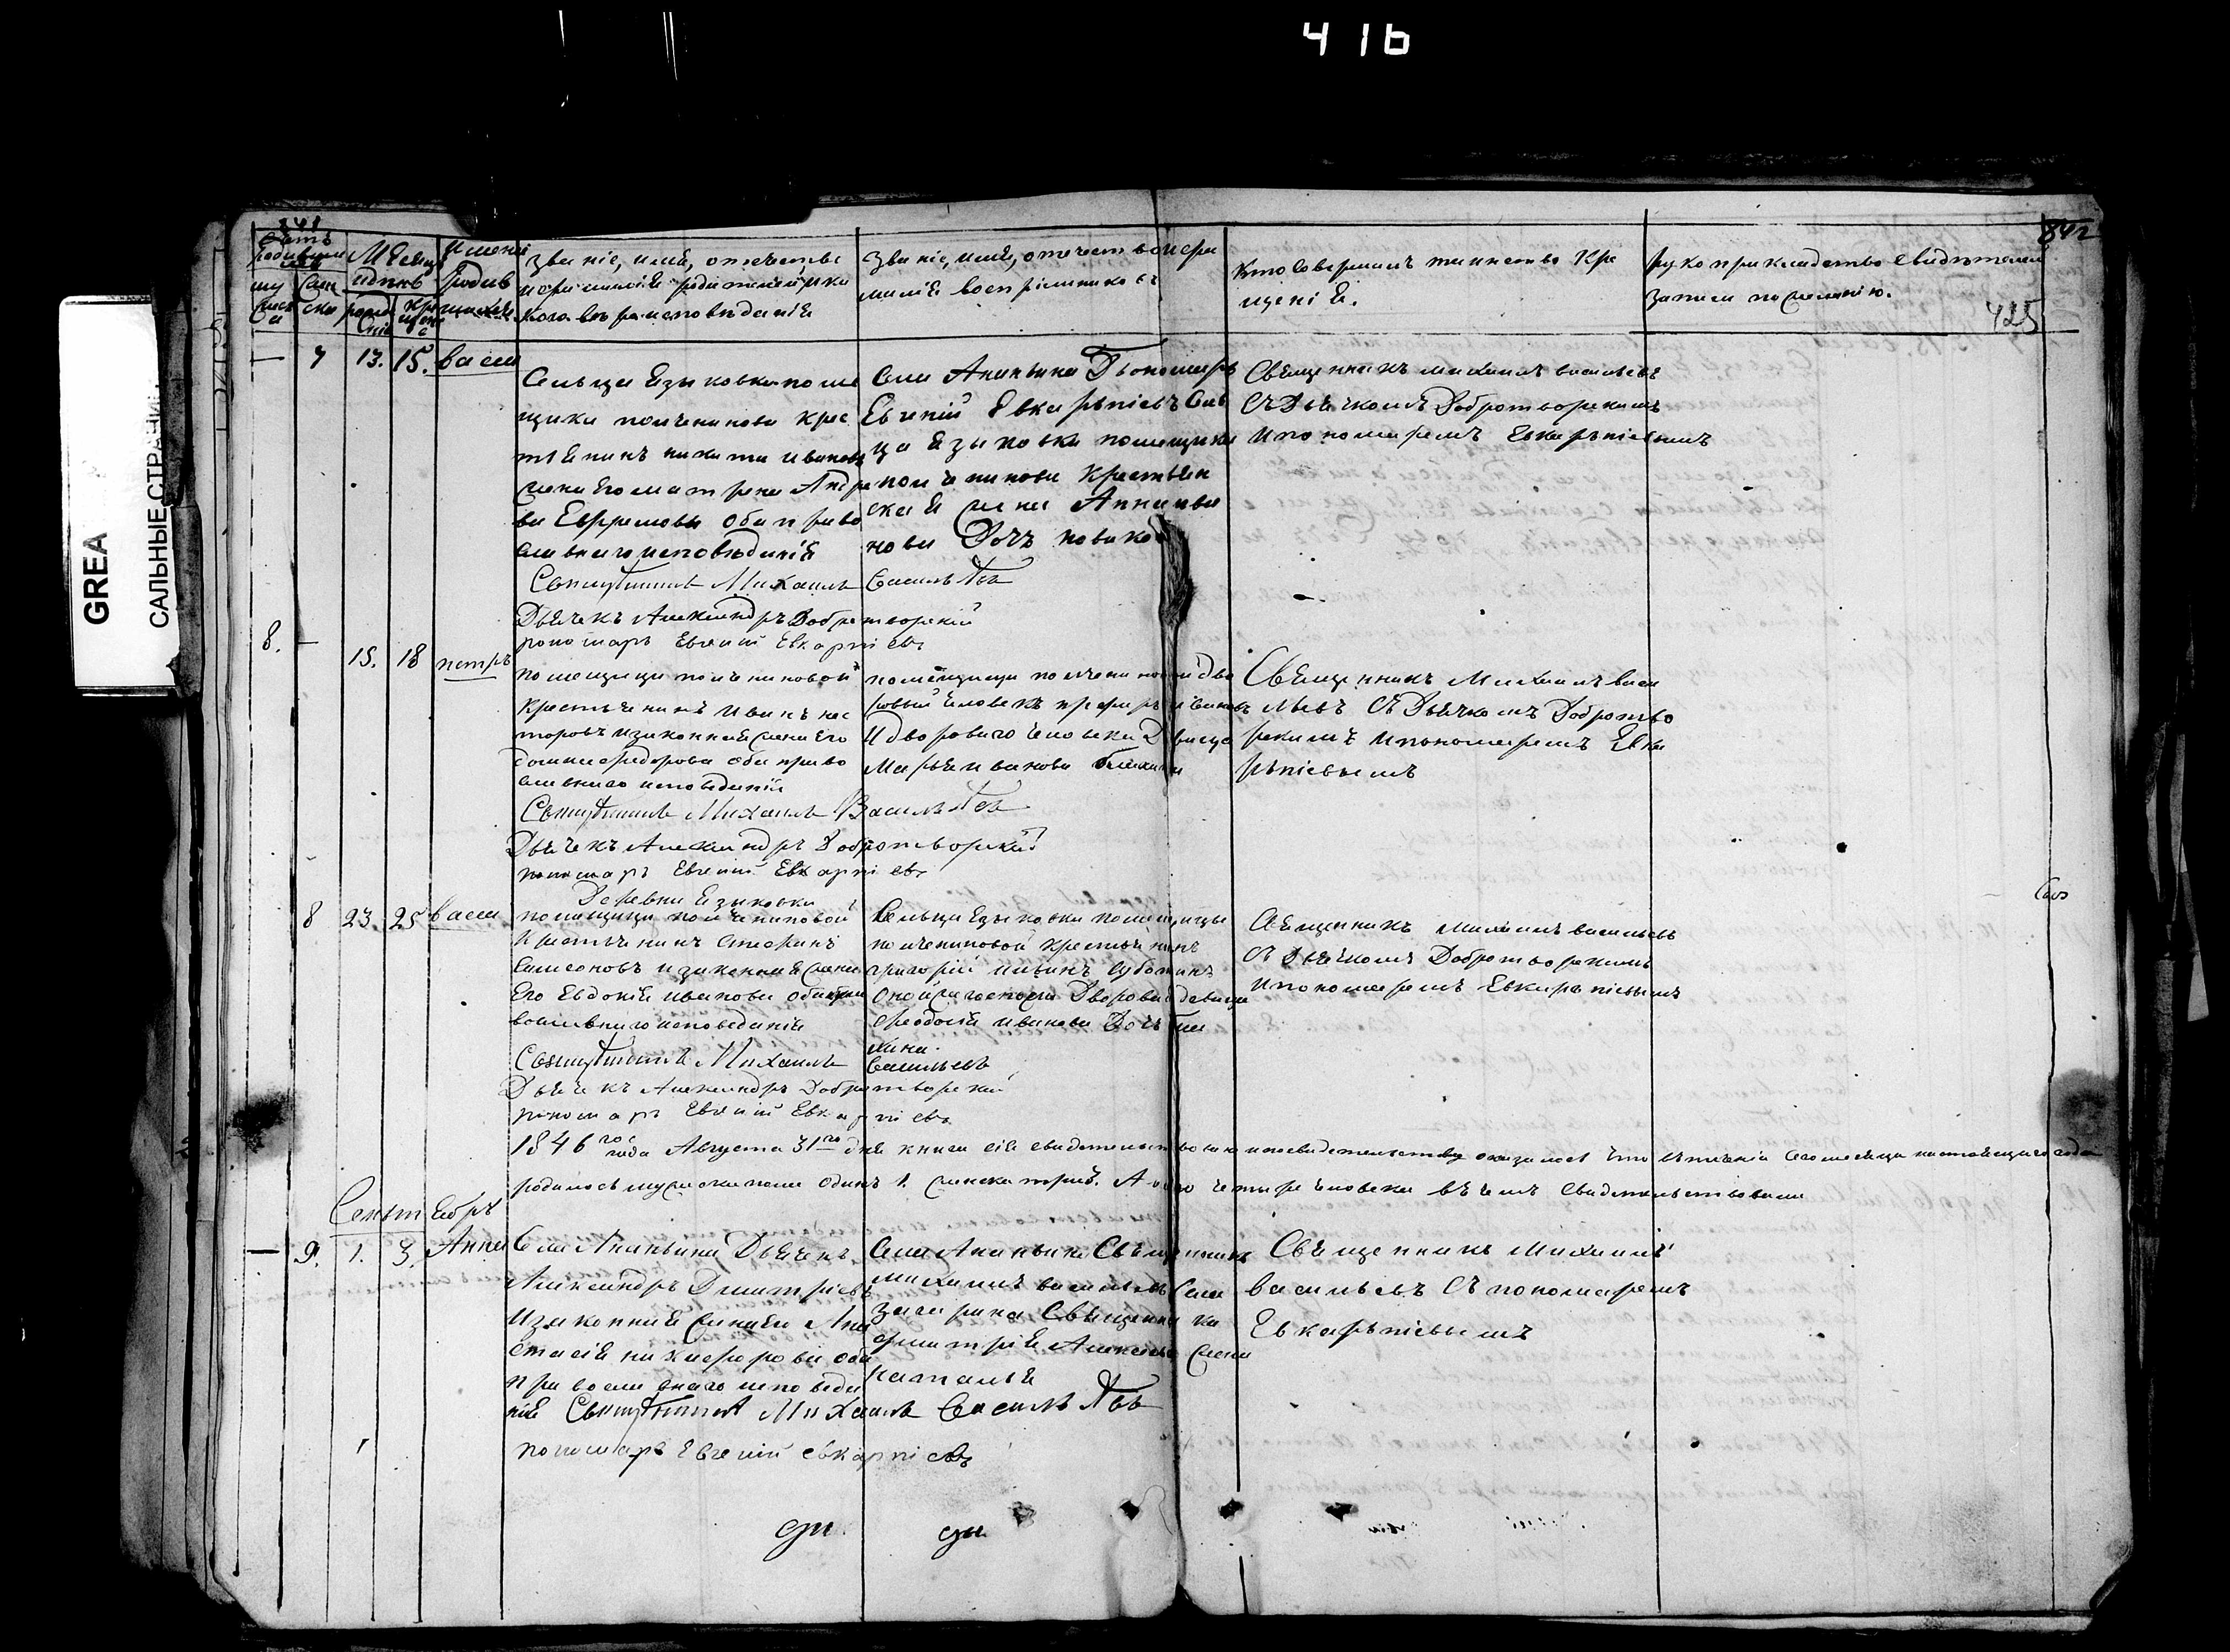 416
GREA
САЛЬНЫЕ СТРАНИ
841
842
425
Мѣсяц
и день
Имена
родив
шихся
званіе, имя, отечество
и фамилія родителей, и ка
кова вѣроисповѣданія
Званіе, имя, отечество и фа
милія воспріемников
Кто совершалъ таинство Кре
щенія.
рукоприкладство свидѣтелей
записи по желанію.
7 13. 15. васи
Сельца Языковки поме
щика
крес
тянинъ никита ивановъ
жена его матрена Андре
ва Ефремовы оба право
славнаго исповѣданія
Села Ананьина Пономарь
Евгеній Евкарпіевъ Сель
ца Языковки помещика
крестьян
ская жена Анна ива
нова Дочь
Священникъ михаилъ васильевъ
Съ Дьячкомъ Добротворскимъ
и пономаремъ Евкарпіевымъ
Священникъ Михаилъ Васильевъ
Дьячекъ Александръ Добротворскій
пономарь Евгеній Евкарпіевъ
8. 15. 18 петръ
помещицы
крестьянинъ иванъ нес
торовъ и законная жена его
домна федорова оба право
славнаго исповеданія
помещицы
дво
ровый человекъ
ивановъ
и дворового человека Девица
Марья иванова
Священникъ Михаилъ васи
льевъ Съ Дьячкомъ Добротво
рскимъ и пономаремъ Евка
рпіевымъ
Священникъ Михаилъ Васильевъ
Дьячекъ Александръ Добротворскій
пономарь Евгеній Евкарпіевъ
8 23. 25 васи
Деревни Языковки
помещицы
крестьянинъ Стефанъ
Симеоновъ и законная жена
Его Евдокія иванова оба пра
вославнаго исповеданія
Сельца Языковки помещицы
крестьянинъ
григорій
Оной
госпожи Дворовая девица
Феодосія иванова Дочь
Священникъ михаилъ васильевъ
Съ Дьячкомъ Добротворскимъ
и пономаремъ Евкарпіевымъ
Священникъ Михаилъ Васильевъ
Дьячекъ Александръ Добротворскій
пономарь Евгеній Евкарпіевъ
1846го года Августа 31го дня книга сія свидетельствована и по свидетельству оказалось что въ теченіи сего месяца настоящаго года
родилось мужеска пола одинъ 1. женска три 3. А всего четыре человека въ чемъ свидетельствовали
Сентябрь
9. 1. 3. Анна
Села Ананьина Дьячекъ
Александръ Дмитріевъ
и законная жена его Ана
стасія никифорова оба
православнаго исповеда
нія
Села Ананьина Священникъ
михаилъ васильевъ Села
Священника
димитрія Алексева жена
наталья
Священникъ Михаилъ
васильевъ Съ пономаремъ
Евкарпіевымъ
Священникъ Михаилъ Васильевъ
пономарь Евгеній Евкарпіевъ